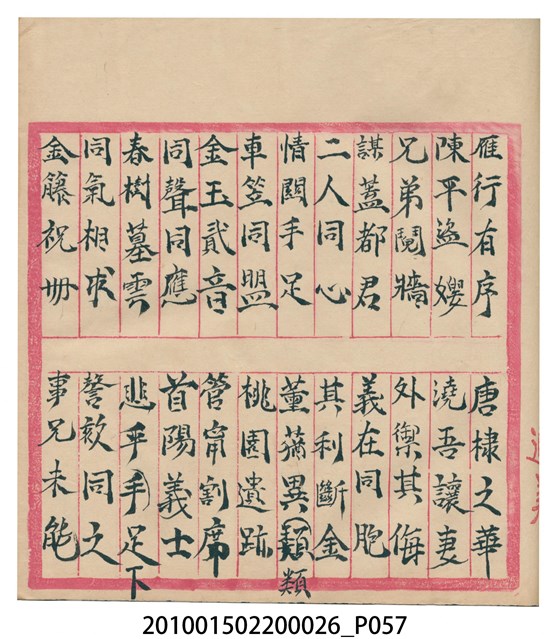 雁行有序
陳平盜嫂
兄弟鬩牆
謀蓋都君
二人同心
情關手足
車笠同盟
金玉貳音
同聲同應
春樹墓雲
同氣相求
金籐祝冊
唐棣之華
澆吾讓妻
外禦其侮
義在同胞
其利斷金
董蕕異類
類
桃園遺跡
管甯割席
首陽義士
悲乎手足
下
警欬同之
事兄未能
201001502200026_P057